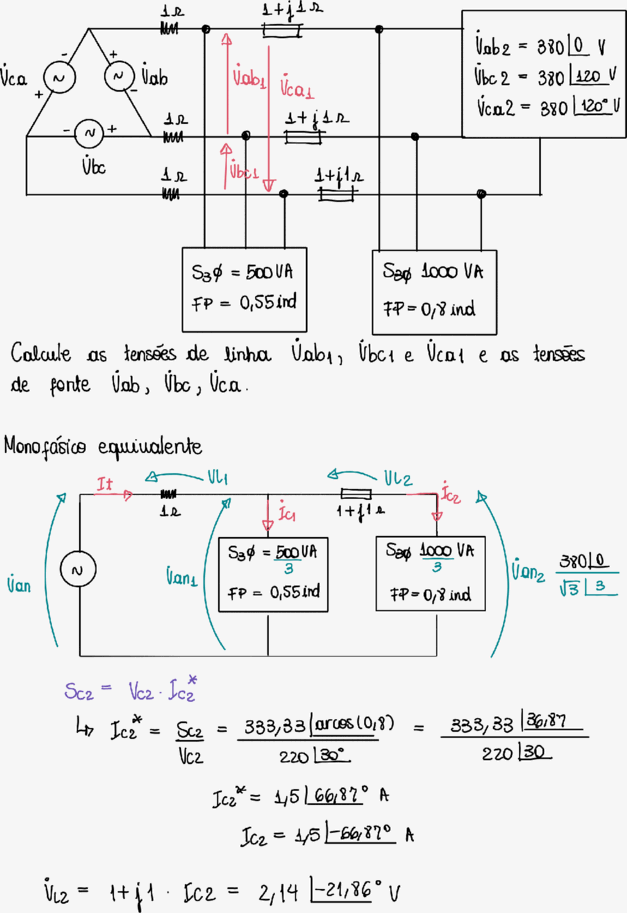 1Ω
1+j1Ω
V̇ab2 = 380|0 V
V̇bc2 = 380|120 V
V̇ca2 = 380|120° V
V̇ca
- ~ +
~
+
-
V̇ab
V̇ab1
V̇ca1
1Ω
1+j1Ω
- ~ +
V̇bc
V̇bc1
1Ω
1+j1Ω
S3φ = 500 VA
FP = 0,55 ind
S3φ 1000 VA
FP = 0,8 ind
Calcule as tensões de linha V̇ab1, V̇bc1 e V̇ca1 e as tensões
de fonte V̇ab, V̇bc, V̇ca.
Monofásico equivalente
It
VL1
1Ω
VL2
1+j1Ω
İc1
İc2
V̇an
~
V̇an1
S3φ = 500 VA
3
FP = 0,55 ind
S3φ 1000 VA
3
FP = 0,8 ind
V̇an2
380|0
√3 |3
Sc2 = Vc2 · Ic2*
↳ Ic2* = Sc2 = 333,33|arcos(0,8) = 333,33|36,87
Vc2 220|30° 220|30
Ic2* = 1,5|66,87° A
Ic2 = 1,5|-66,87° A
V̇L2 = 1+j1 · Ic2 = 2,14 |-21,86° V